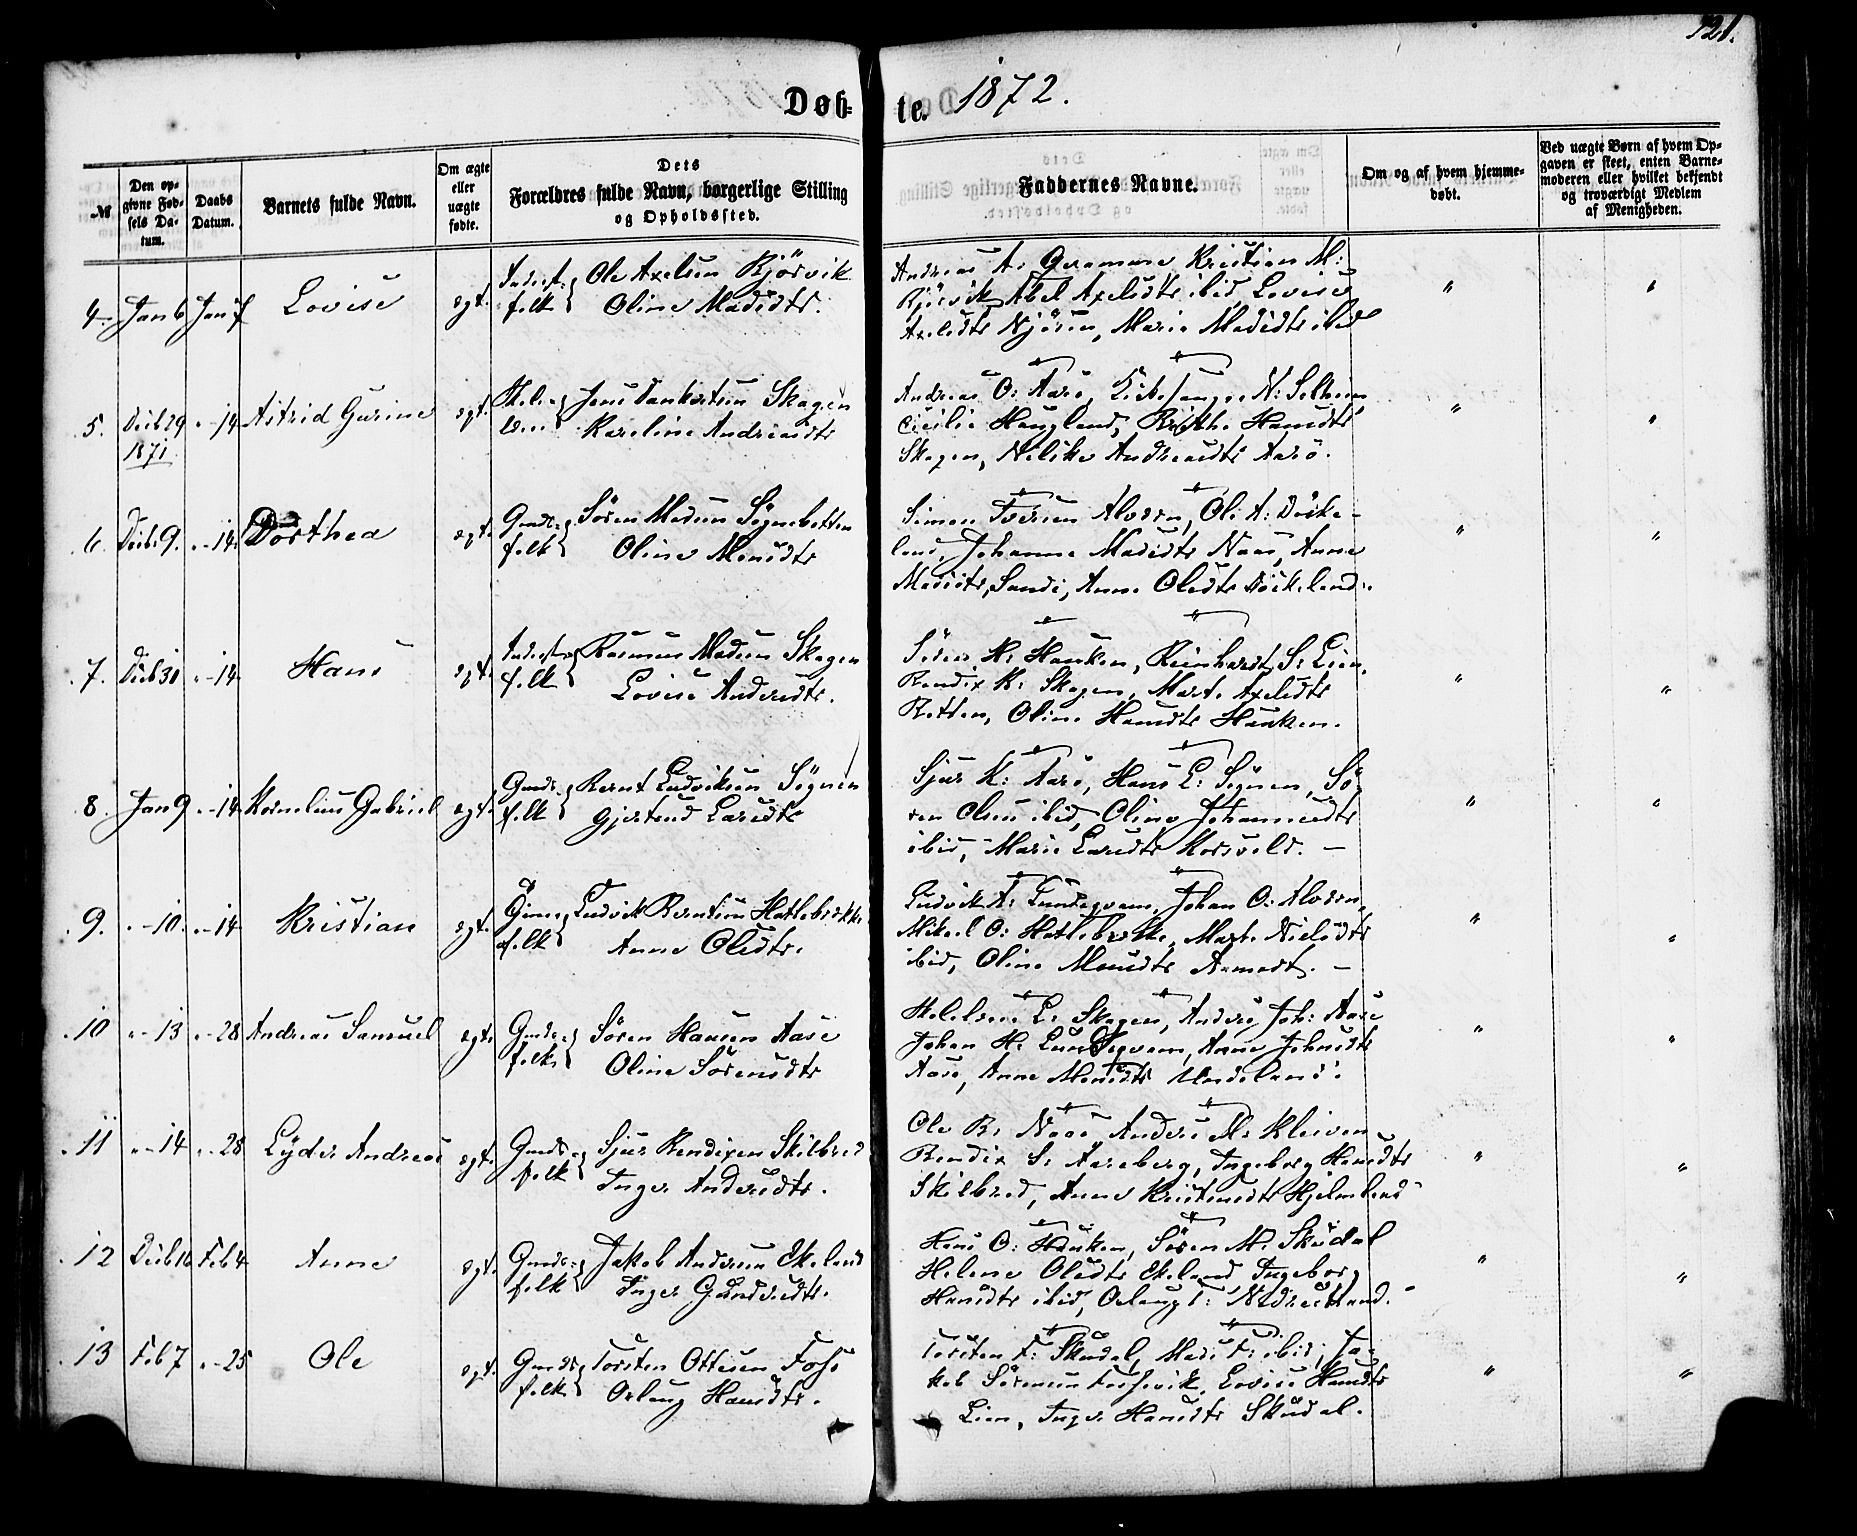 121.
Døb-
te. 1872.
№
Den op-
givne Fød-
sels Da-
tum.
Daabs
Datum.
Barnets fulde Navn.
Om ægte
eller
uægte
fødte.
Dets
Forældres fulde Navn, borgerlige Stilling
og Opholdssted.
Faddernes Navne.
Om og af hvem hjemme-
døbt.
Ved uægte Børn af hvem Op-
gaven er skeet, enten Barne-
moderen eller hvilket bekjendt
og troværdigt Medlem
af Menigheden.
4. Jan 6 Jan 7 Lovise ægt. Inderst- Ole Axelsen Bjørvik
folk Oline Madsdtr.
Andreas A: Kristian M:
Bjørvik, Abel Axelsdtr ibid, Lovise
Axelsdtr Njøsen, Marie Madsdtr ibid
5. Decb 29 " - 14 Astrid Gurine ægt. Jens Dankertsen Skagen
1871. Kareline Andreasdtr
Andreas O: Aarø, N: Selheim
Cicilie Haugland, Brithe Hansdtr
Skagen, Andreasdtr Aarø.
6. Decb 9. " - 14. Dorthea ægt. Gmds- Søren Madsen Sögnebotten
folk Oline Monsdtr
Simon Iversen Alværn, Ole A: Döske-
land, Johanne Madsdtr Naas, Anne
Madsdtr, Sande, Anne Olsdtr Döskeland.
7. Decb 30 " - 14 Hans ægt. Inderst- Rasmus Madsen Skagen
folk Lovise Andersdtr.
Sören H: Hauken, Reinhardt S: Lien,
Bendix K: Skagen, Marte Axelsdtr
Botten, Oline Hansdtr Hauken.
8. Jan 9 " - 14 Kornelius Gabriel ægt. Gmds- Bernt Ludviksen Sögnen
folk Gjertrud Larsdtr
Sjur K: Aarø, Hans L: Sögnen, Sö-
ren ibid, Oline Johannesdtr
ibid, Marie Larsdtr
9. " - 10. " - 14 Kristian ægt. Ludvik Berntsen Hatlebrække
folk Anne Olsdtr.
Ludvik A: Johan O: Alværn,
Mikael O: Hatlebrække, Marte Nielsdtr
ibid, Oline Monsdtr
10 " - 13 " - 28 Andreas Samuel ægt. Gmds- Sören Hansen Aase
folk Oline Sörensdtr
L: Skagen, Anders Joh: Aase
Johan H: Anne Johnsdtr
Aase, Anne Monsdtr Undeland.
11 " - 14 " - 28 Lyder Andreas ægt. Gmds- Sjur Bendixen Skilbred
folk Inger Andersdtr.
Ole B: Naas, Anders M: Kleiven
Bendix S: Aareberg, Ingeborg Hansdtr
Skilbred, Anne Kristensdtr Hjelmeland
12 Decb 16 Feb 4 Anne ægt. Gmds- Jakob Andersen Ekeland
folk Inger Gundersdtr.
Hans O: Hauken, Sören M: Skudal
Helene Olsdtr Ekeland Ingeborg
Hansdtr ibid, Orlaug T:
13 Feb 7 " - 25 Ole ægt. Gmds- Torsten Ottesen Foss
folk Orlaug Hansdtr.
Torsten T: Skudal, Mads T: ibid, Ja-
kob Sörensen Lovise Hansdtr
Lien, Inger Hansdtr Skudal.